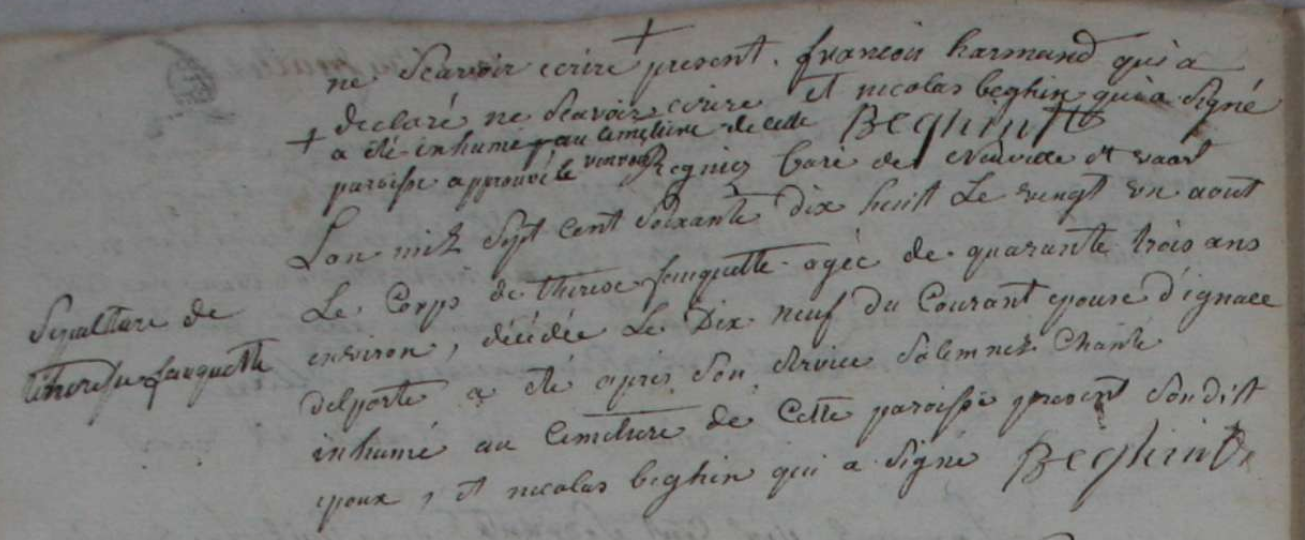 ne Scavoir ecrire + present . francois harmand qui a
declaré ne Scavoir ecrire et nicolas beghin qui a Signé
+ a été inhumé au cemetiere de cette Beghin
paroisse approuvé le renvoy Regniez Curé de Neuville et vaast
L'an mil Sept Cent Soixante dix huit Le vingt un aout
Le Corps de therese fauquette agée de quarante trois ans
environ, décédée Le Dix neuf du Courant epouse d'ignace
delporte a été apres Son Service Solemnel Chanté
inhumé au Cemetiere de Cette paroisse present Son dist
epoux, et nicolas beghin qui a Signé Beghin
Sepulture de
therese fauquette